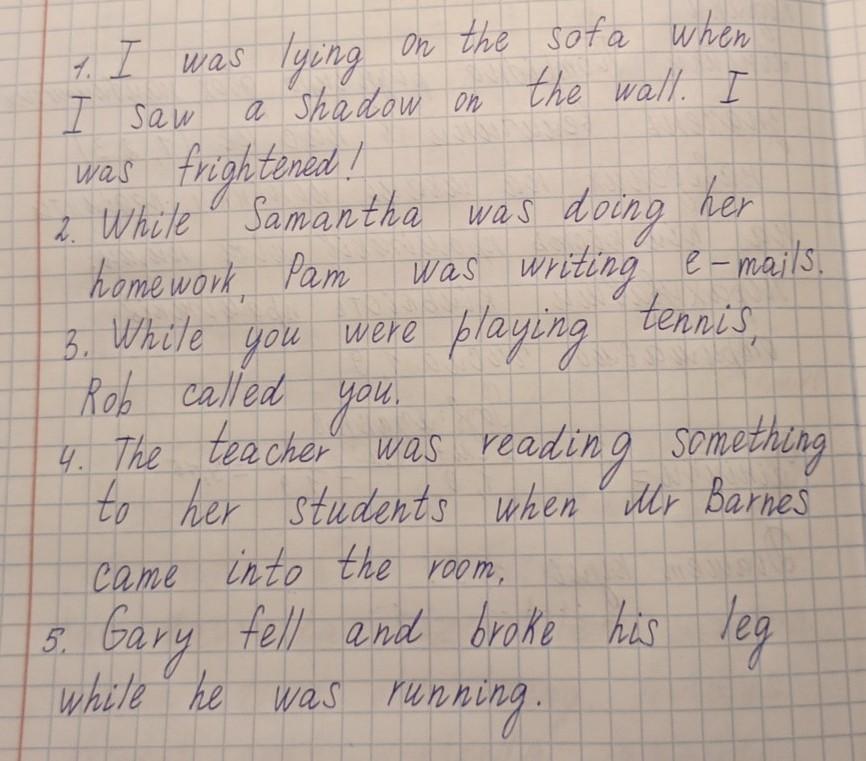 1. I was lying on the sofa when
I saw a shadow on the wall. I
was frightened!
2. While Samantha was doing her
homework, Pam was writing e-mails.
3. While you were playing tennis,
Rob called you.
4. The teacher was reading something
to her students when Mr Barnes
came into the room.
5. Gary fell and broke his leg
while he was running.